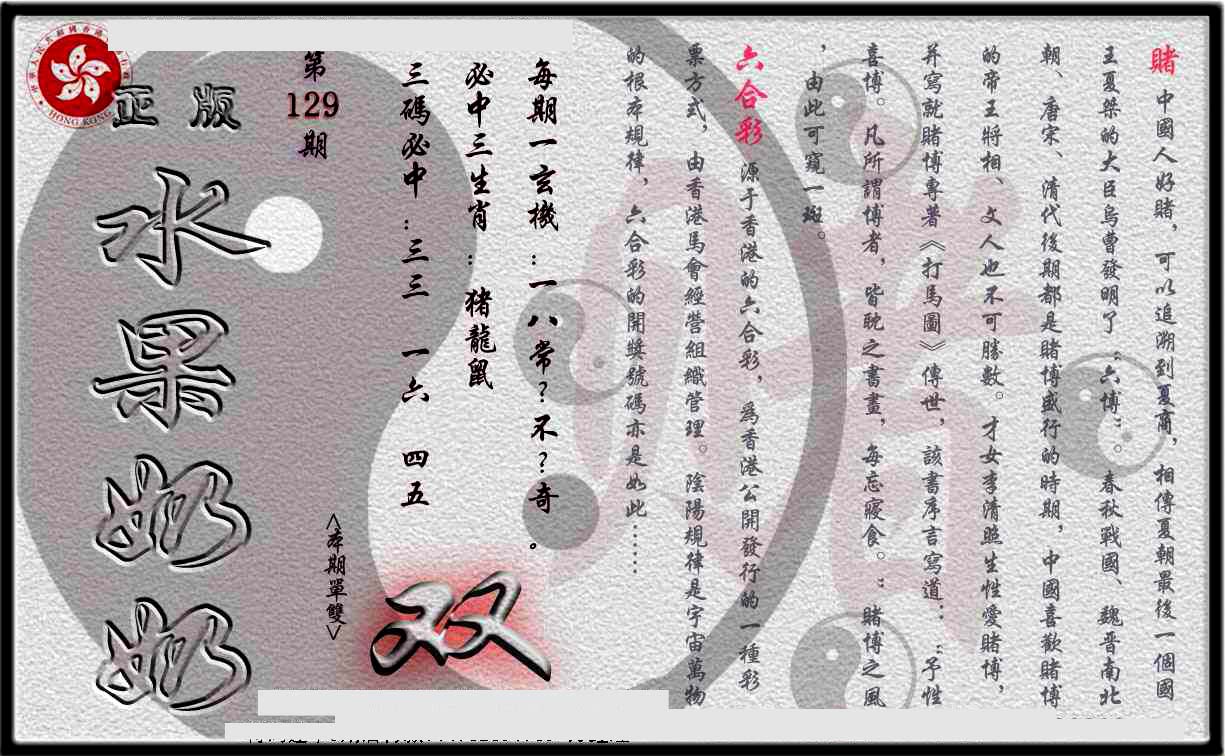 賭 中國人好賭，可以追溯到夏商，相傳夏朝最後一個國
王夏桀的大臣烏曹發明了“六博”。春秋戰國、魏晉南北
朝、唐宋、清代後期都是賭博盛行的時期，中國喜歡賭博
的帝王將相、文人也不可勝數。才女李清照生性愛賭博，
并寫就賭博專著《打馬圖》傳世，該書序言寫道：“予性
喜博。凡所謂博者，皆耽之書畫，每忘寢食。”賭博之風
，由此可窺一斑。
六合彩 源于香港的六合彩，爲香港公開發行的一種彩
票方式，由香港馬會經營組織管理。陰陽規律是宇宙萬物
的根本規律，六合彩的開獎號碼亦是如此……
每期一玄機：一八常？不？奇。
必中三生肖：猪龍鼠
三碼必中：三三 一六 四五
<本期單雙>
双
第129期
正版
水果奶奶
HONG KONG